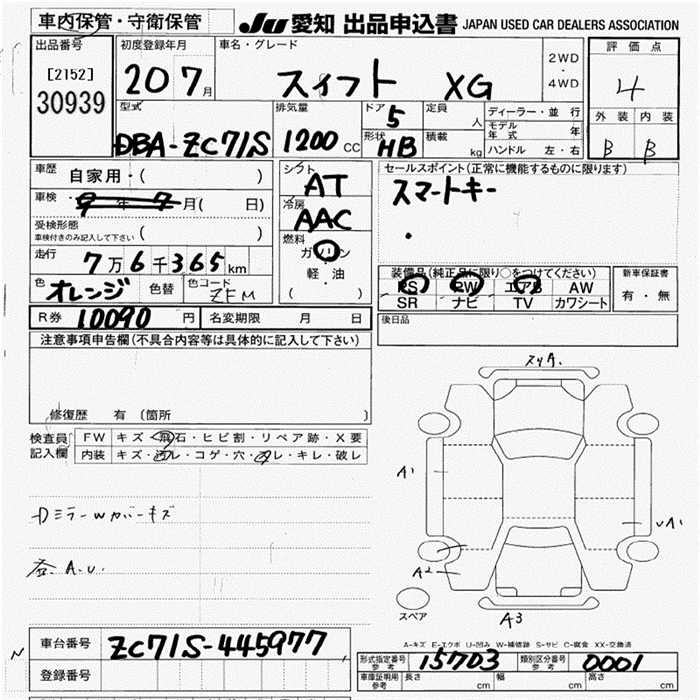 車内保管・守衛保管 JU 愛知 出品申込書 JAPAN USED CAR DEALERS ASSOCIATION
出品番号 初度登録年月 車名・グレード 2WD・4WD 評価点
[2152] 20 7月 スイフト XG 4
30939
型式 排気量 ドア 5 定員 人 ディーラー・並行 外装 内装
DBA-ZC71S 1200 CC 形状 HB 積載 kg モデル年式 年 B B
ハンドル 左・右
車歴 自家用・( ) シフト AT セールスポイント(正常に機能するものに限ります)
車検 9年7月( 日) 冷房 AAC スマートキー
受検形態 車検付きのみ記入して下さい ( ) 燃料 ガソリン・
走行 7万6千365km 軽・油
( )
装備品(純正品に限り○をつけてください) 新車保証書
PS PW エアB AW 有・無
色 オレンジ 色替 色コード ZFM SR ナビ TV カワシート
R券 10090円 名変期限 月 日 後日品
注意事項申告欄(不具合内容等は具体的に記入して下さい)
修復歴 有(箇所 )
検査員記入欄 FW キズ・飛石・ヒビ割・リペア跡・X要
内装 キズ・ヨゴレ・コゲ・穴・スレ・キレ・破レ
DミラーWカバーキズ
A.U.
スリA.
A1
UA1
A2
A3
スペア
A-キズ E-エクボ U-凹み W-補修跡 S-サビ C-腐食 XX-交換済
車台番号 ZC71S-445977
登録番号
形式指定番号 参考 15703 類別区分番号 参考 0001
車庫証明用 参考 長さ cm 幅 cm 高さ cm